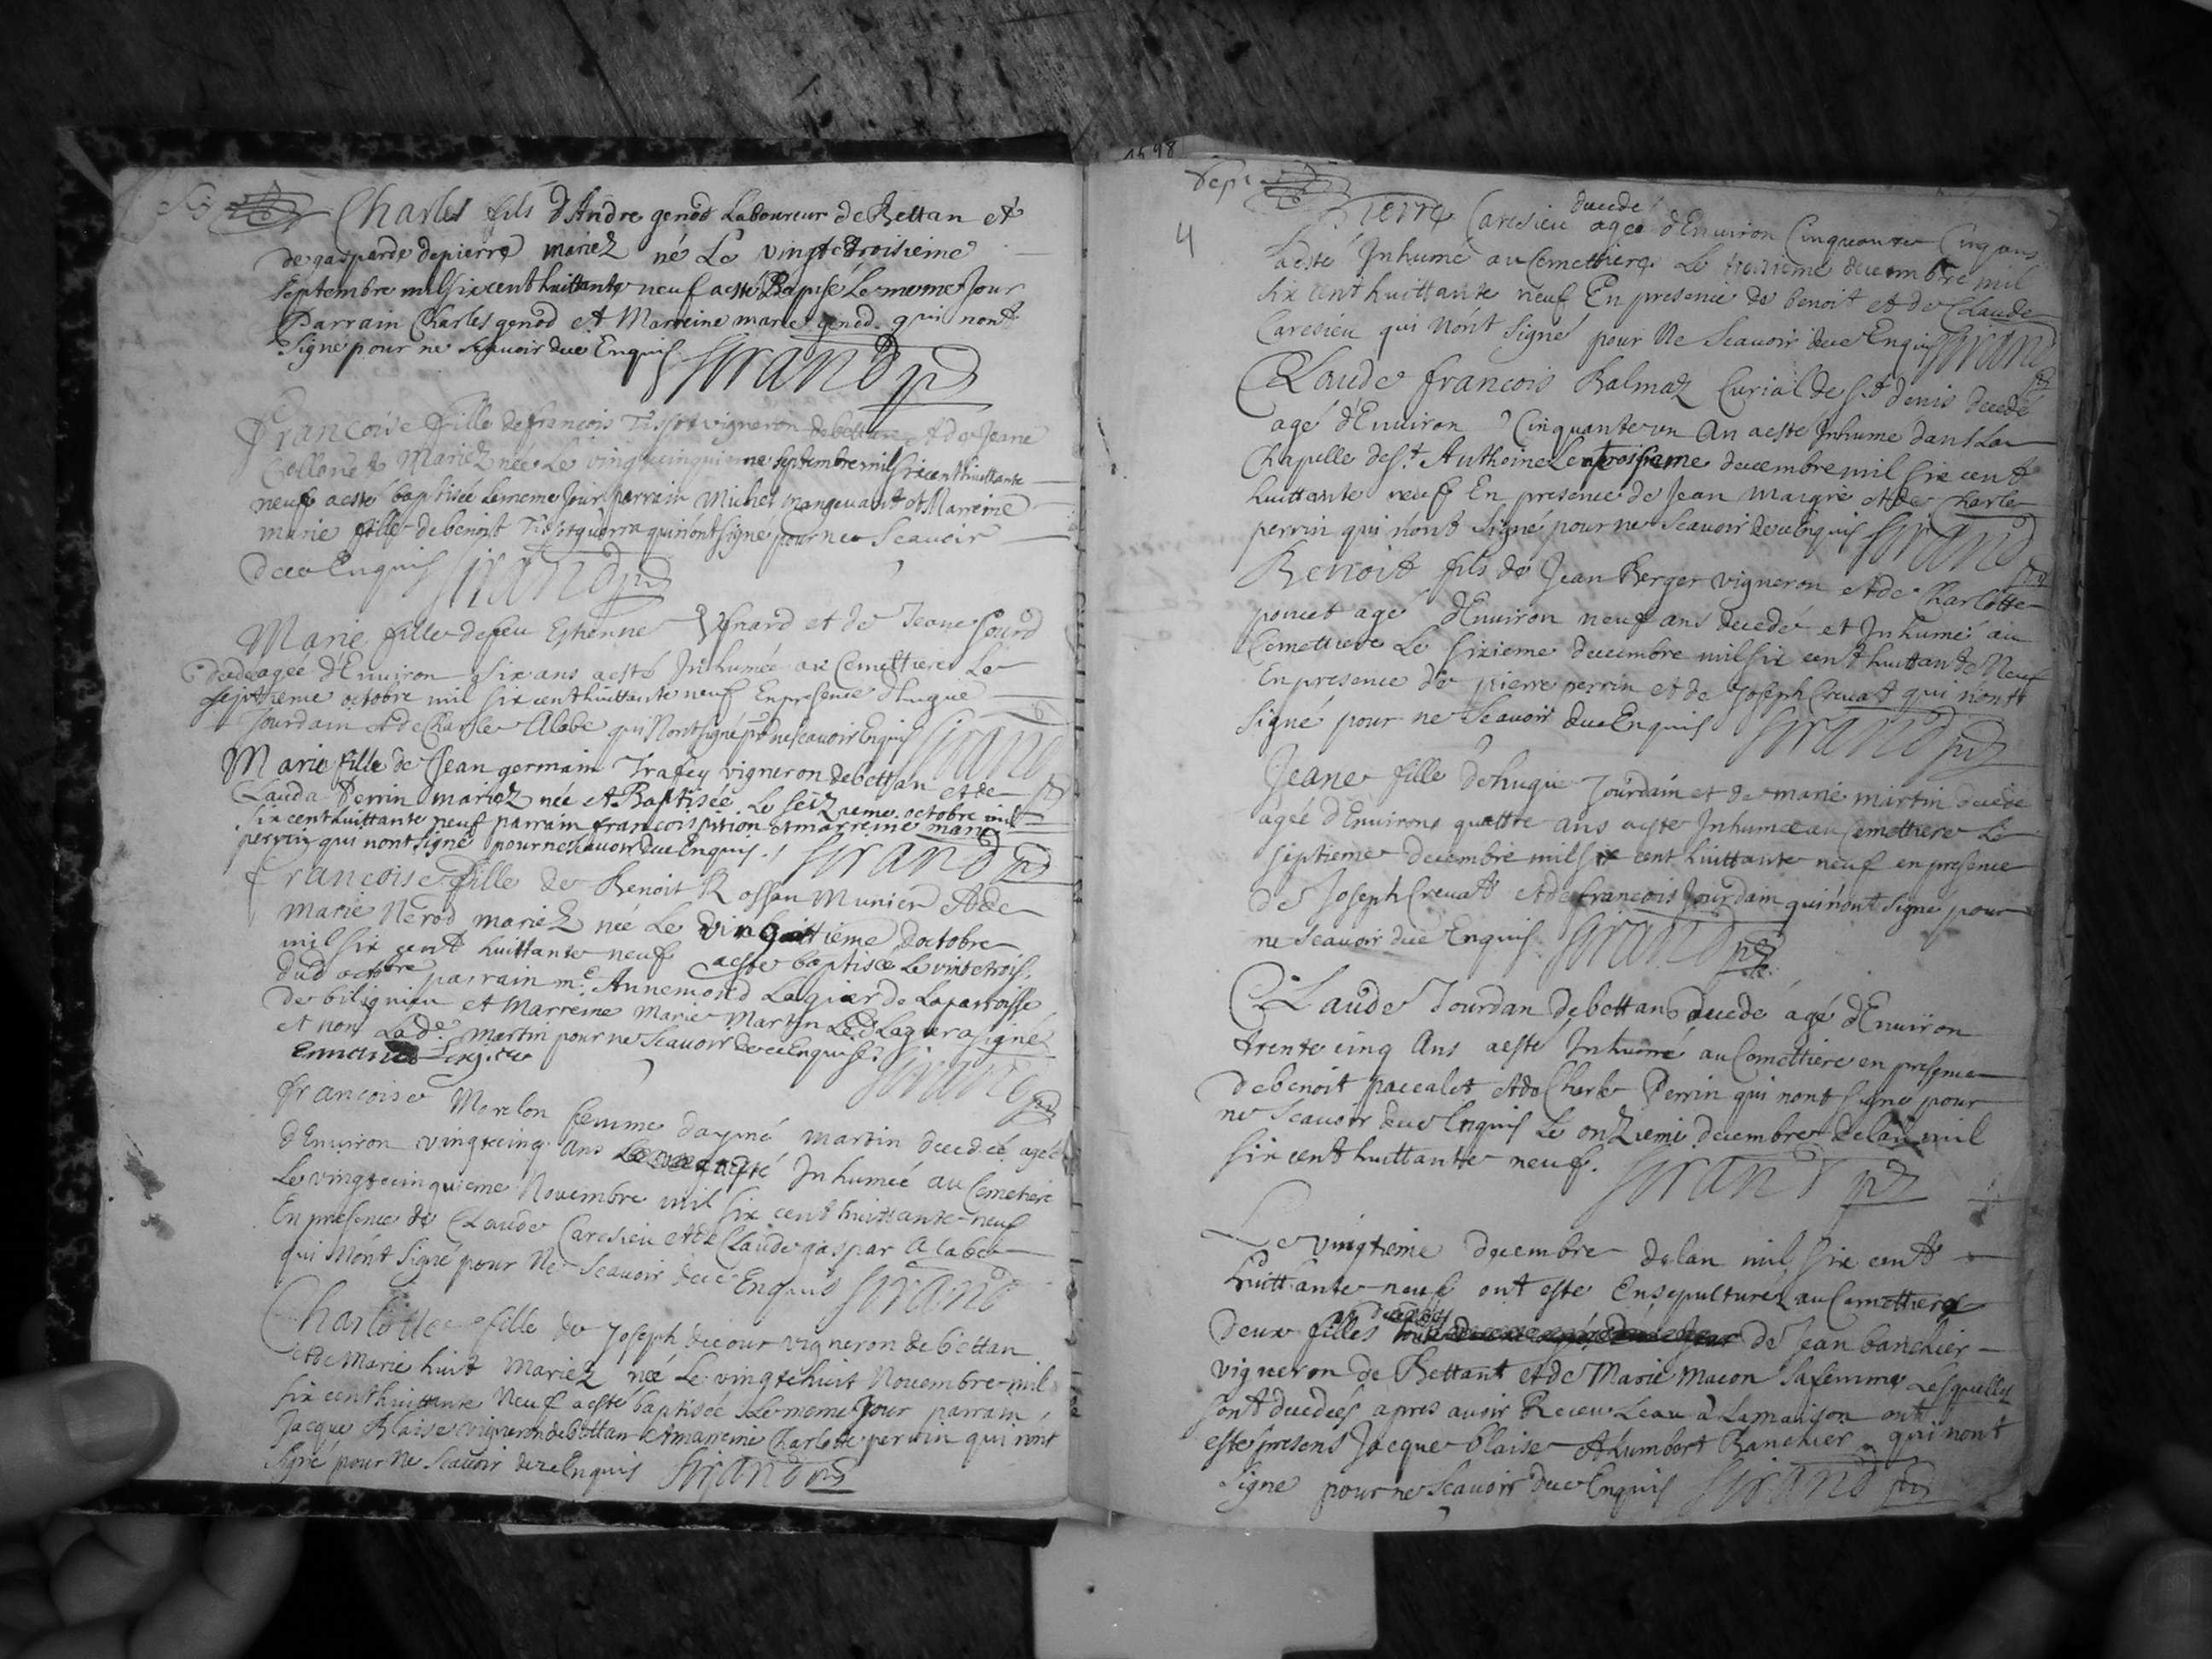 Charles fils d'Andre genod Laboureur de Bettan et
de gasparde depierre mariez né Le vingt troisieme
septembre mil six cent huittante neuf a esté Baptisé Le meme Jour
Parrain Charles genod et Marreine marie genod qui nont
signé pour ne scavoir duee Enquis Girand p
Francoise fille de francois Tissot vigneron de bettan et de Jeane
mariez née Le vingtecinquieme septembre mil six cent huittante
neuf a esté baptisée le meme Jour parrain Michel et Marreine
marie fille de benoist qui nont signé pour ne scavoir
duee Enquis Girand p
Marie fille de feu Estienne et de Jeane
decedee agee d'Environ six ans a esté Inhumée au Cemettiere Le
septieme octobre mil six cent huittante neuf En presence d'hugue
Jourdain et de Charle Alabe qui Nont signé pr ne scavoir Enquis Girand
Marie fille de Jean germain Trafey vigneron de bettan et de
Clauda Perrin mariez née et Baptisée Le seizieme octobre mil
six cent huittante neuf parrain francois pition et marreine marie
perrin qui nont signé pour ne scavoir duee Enquis Girand p
francoise fille de Benoit Rossan Munier et de
marie Nerod mariez née Le d'octobre
mil six cent huittante neuf a esté baptisee Le vintetrois
dud octobre parrain mr Annemond Lagier de La parroisse
de bilignieu et Marreine Marie Martin Led Lagier a signé
et non La de martin pour ne scavoir duee Enquise Girand p
francoise Morelon femme d'aymé martin decedeé ageé
d'Environ vingtecinq ans a esté Inhumeé au Cemetiere
Le vingtecinquieme Novembre mil six cent huittante neuf
En presence de Claude Caresieu et de Claude gaspar alabe
qui Nont signé pour Ne scavoir duee Enquis Girand
Charlotte fille de Joseph decour vigneron de bettan
et de Marie huit Mariez née Le vingtehuit Novembre mil
six cent huittante Neuf a esté baptisée Le meme Jour parrain
Jacque Blaise vigneron de bettan et marreine Charlotte perrin qui nont
signé pour Ne scavoir duee Enquis Girand p
1598
4
decede
Pierre Caresieu agé d'Environ Cinquante Cinq ans
a esté Inhumé au Cemettiere Le troisieme decembre mil
six cent huittante neuf En presence de benoit et de Claude
Caresieu qui Nont signé pour Ne scavoir duee Enquis Girand
Claude francois Balmaz Curial de St denis decedé
agé d'Environ Cinquante un An a esté Inhumé dans La
Chapelle de St Anthoine Le troisieme decembre mil six cent
huittante neuf En presence de Jean maigre et de Charle
perrin qui nont signé pour ne scavoir duee Enquis Girand p
Benoit fils de Jean Berger vigneron et de Charlotte
poncet agé d'Environ neuf ans decedé et Inhumé au
Cemettiere Le sixieme decembre mil six cent huittante Neuf
En presence de pierre perrin et de Joseph Crevat qui nont
signé pour ne scavoir duee Enquis Girand p
Jeane fille de hugue Jourdain et de marie martin decedé
ageé d'Environ quattre ans a esté Inhumée au Cemettiere Le
septieme decembre mil six cent huittante neuf en presence
de Joseph Crevat et de francois Jourdain qui nont signé pour
ne scavoir duee Enquis Girand p
Claude Jourdan de bettan decedé agé d'Environ
trente cinq Ans a esté Inhumé au Cemettiere en presence
de benoit paccalet et de Charle Perrin qui nont signé pour
ne scavoir duee Enquis Le onzieme decembre de lan mil
six cent huittante neuf. Girand p
Le vingtieme decembre de lan mil six cent
huittante neuf ont esté Ensepulturez au Cemettiere
deux filles de Jean banchier
vigneron de Bettant et de Marie Macon sa femme Lesquelles
sont decedeés apres avoir Receu Leau à La maison ont
esté presens Jacque blaise et humbert Banchier qui nont
signé pour ne scavoir duee Enquis Girand p